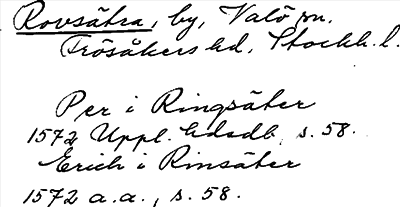 Rovsätra, by, Valö sn.
Frösåkers hd, Stockh. l.
Per i Ringsäter
1572 Uppl. hdsdb. s. 58.
Erich i Rinsäter
1572 a.a., s. 58.